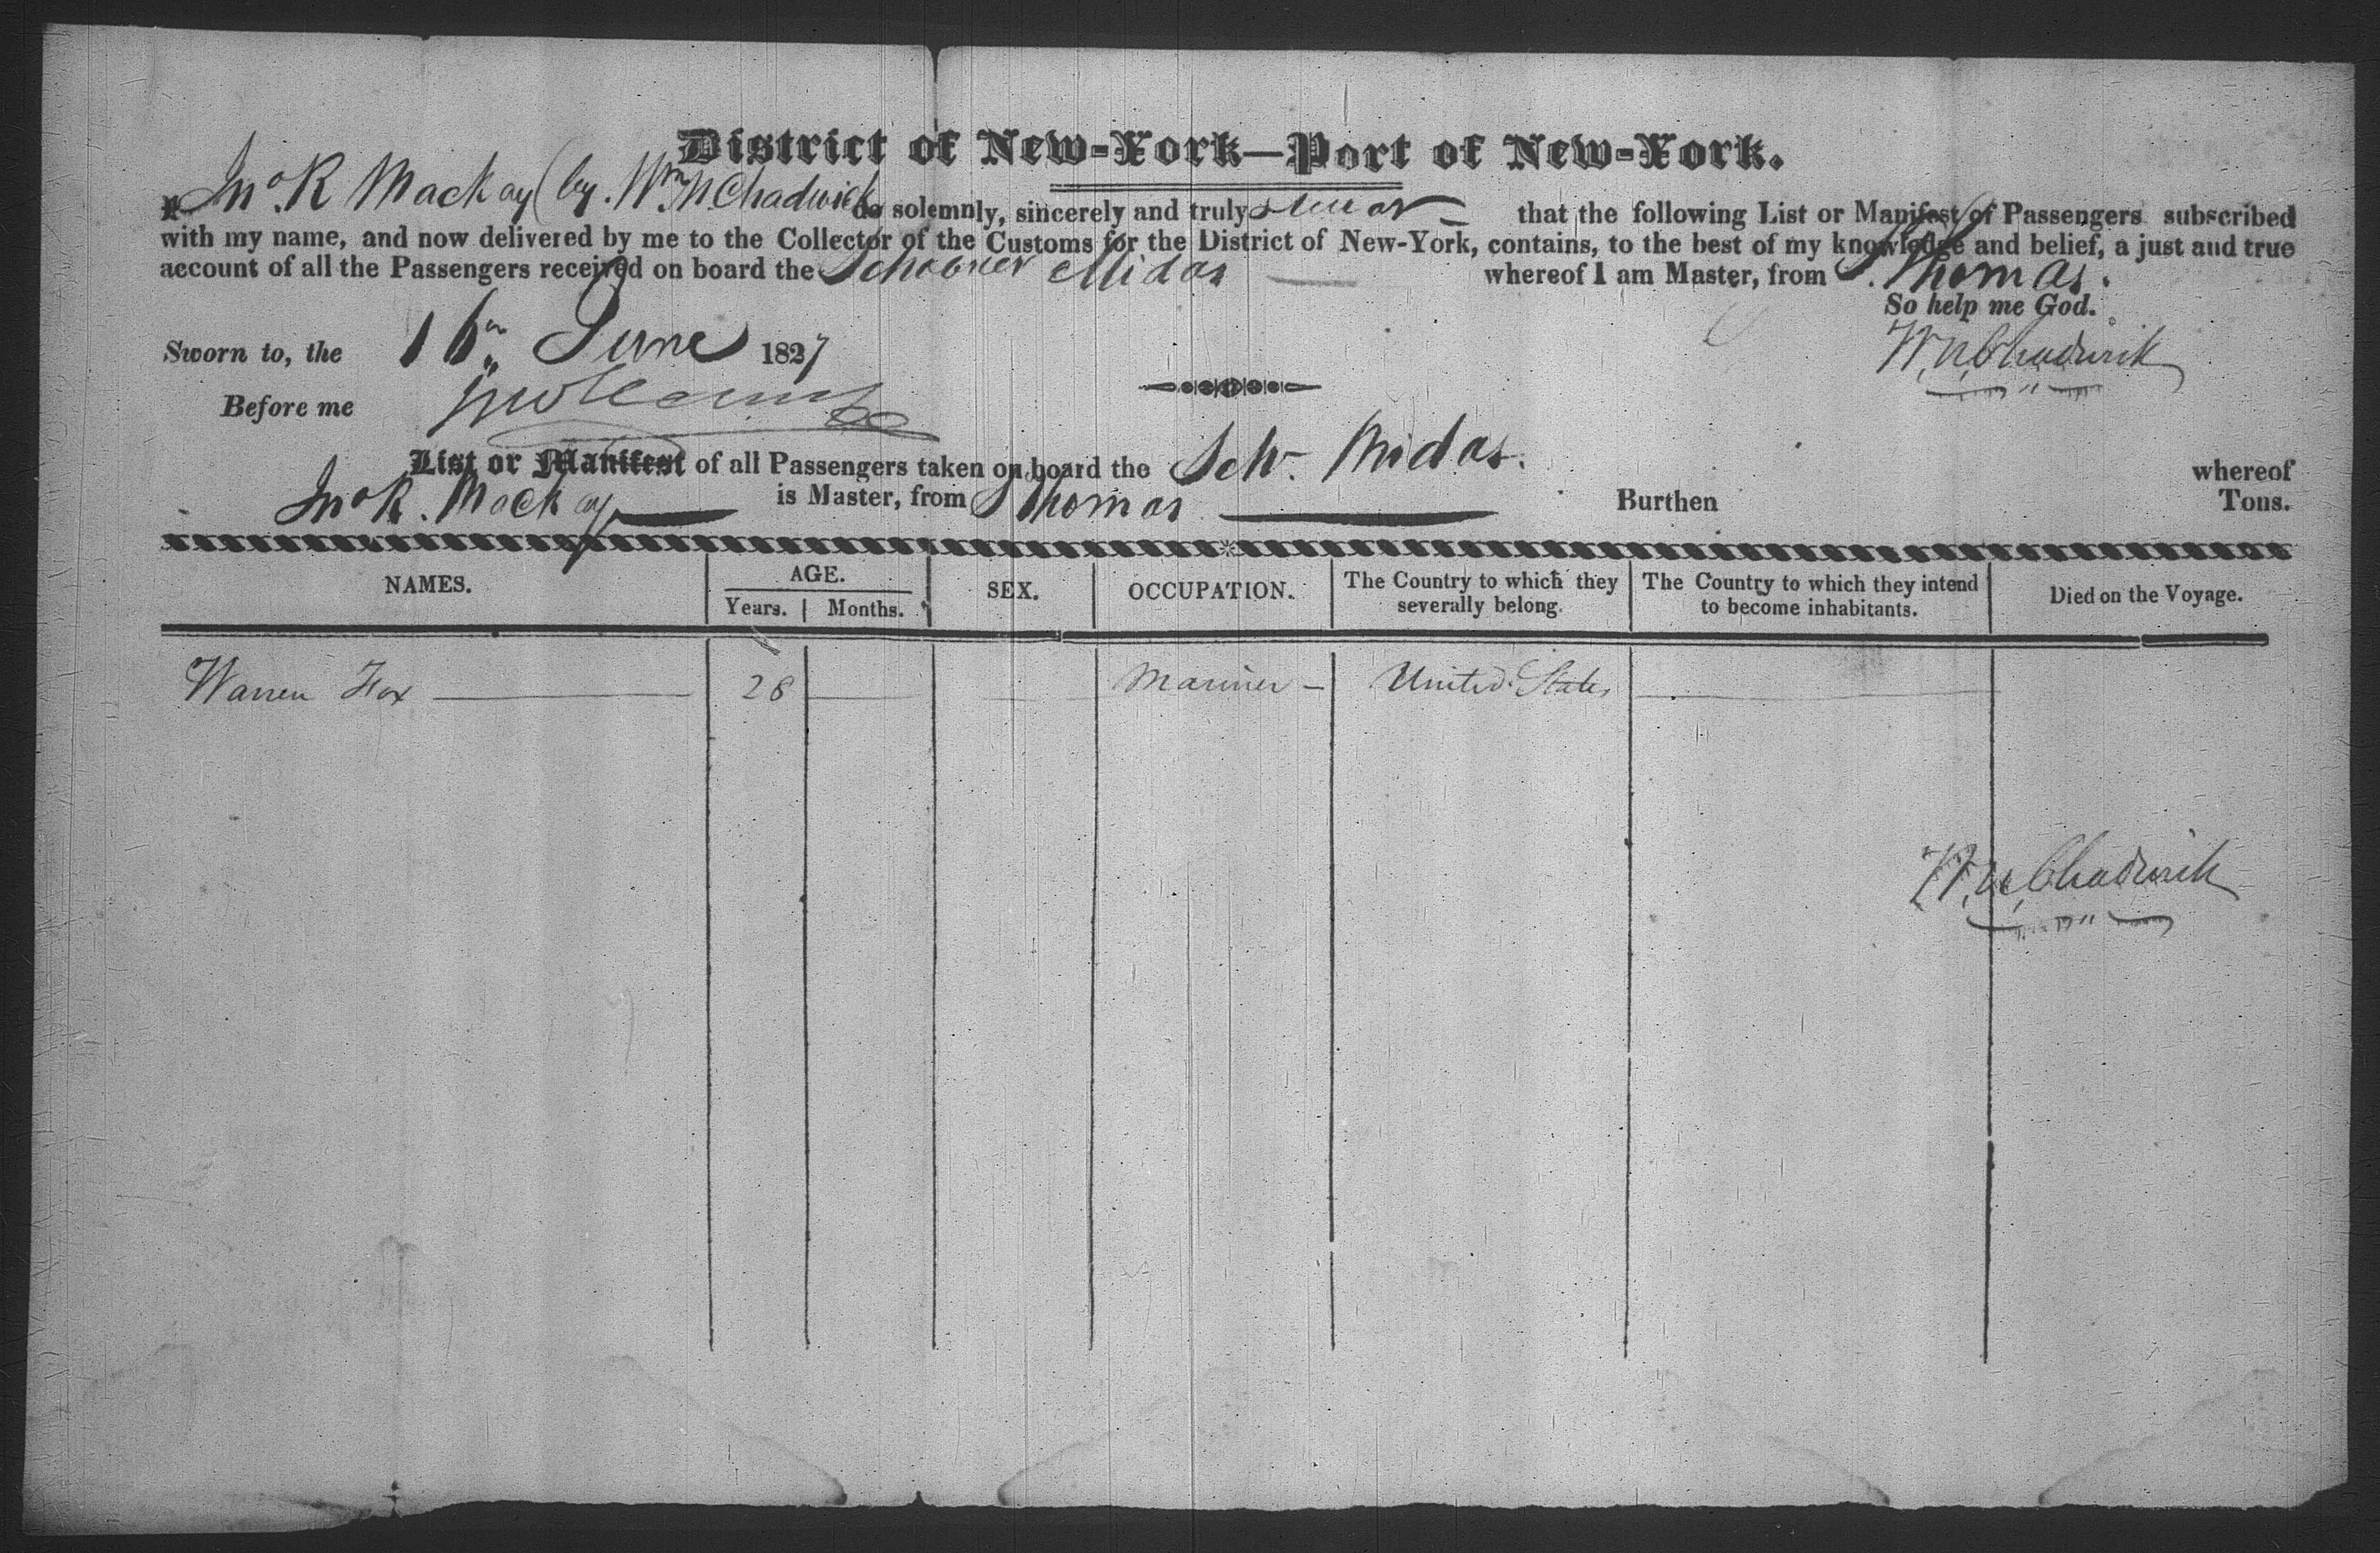 District of New-York—Port of New-York.
I Jno. R Mackay (by Wm N Chadwick do solemnly, sincerely and truly swear that the following List or Manifest of Passengers subscribed
with my name, and now delivered by me to the Collector of the Customs for the District of New-York, contains, to the best of my knowledge and belief, a just and true
account of all the Passengers received on board the Schooner Midas whereof I am Master, from St. Thomas.
So help me God.
Sworn to, the 16th June 1827
W. N. Chadwick
Before me
List or Manifest of all Passengers taken on board the Schr. Midas. whereof
Jno R. Mackay is Master, from St Thomas Burthen Tons.
NAMES. AGE. Years. Months. SEX. OCCUPATION. The Country to which they severally belong. The Country to which they intend to become inhabitants. Died on the Voyage.
Warren Fox 28 Mariner United States
W. N. Chadwick